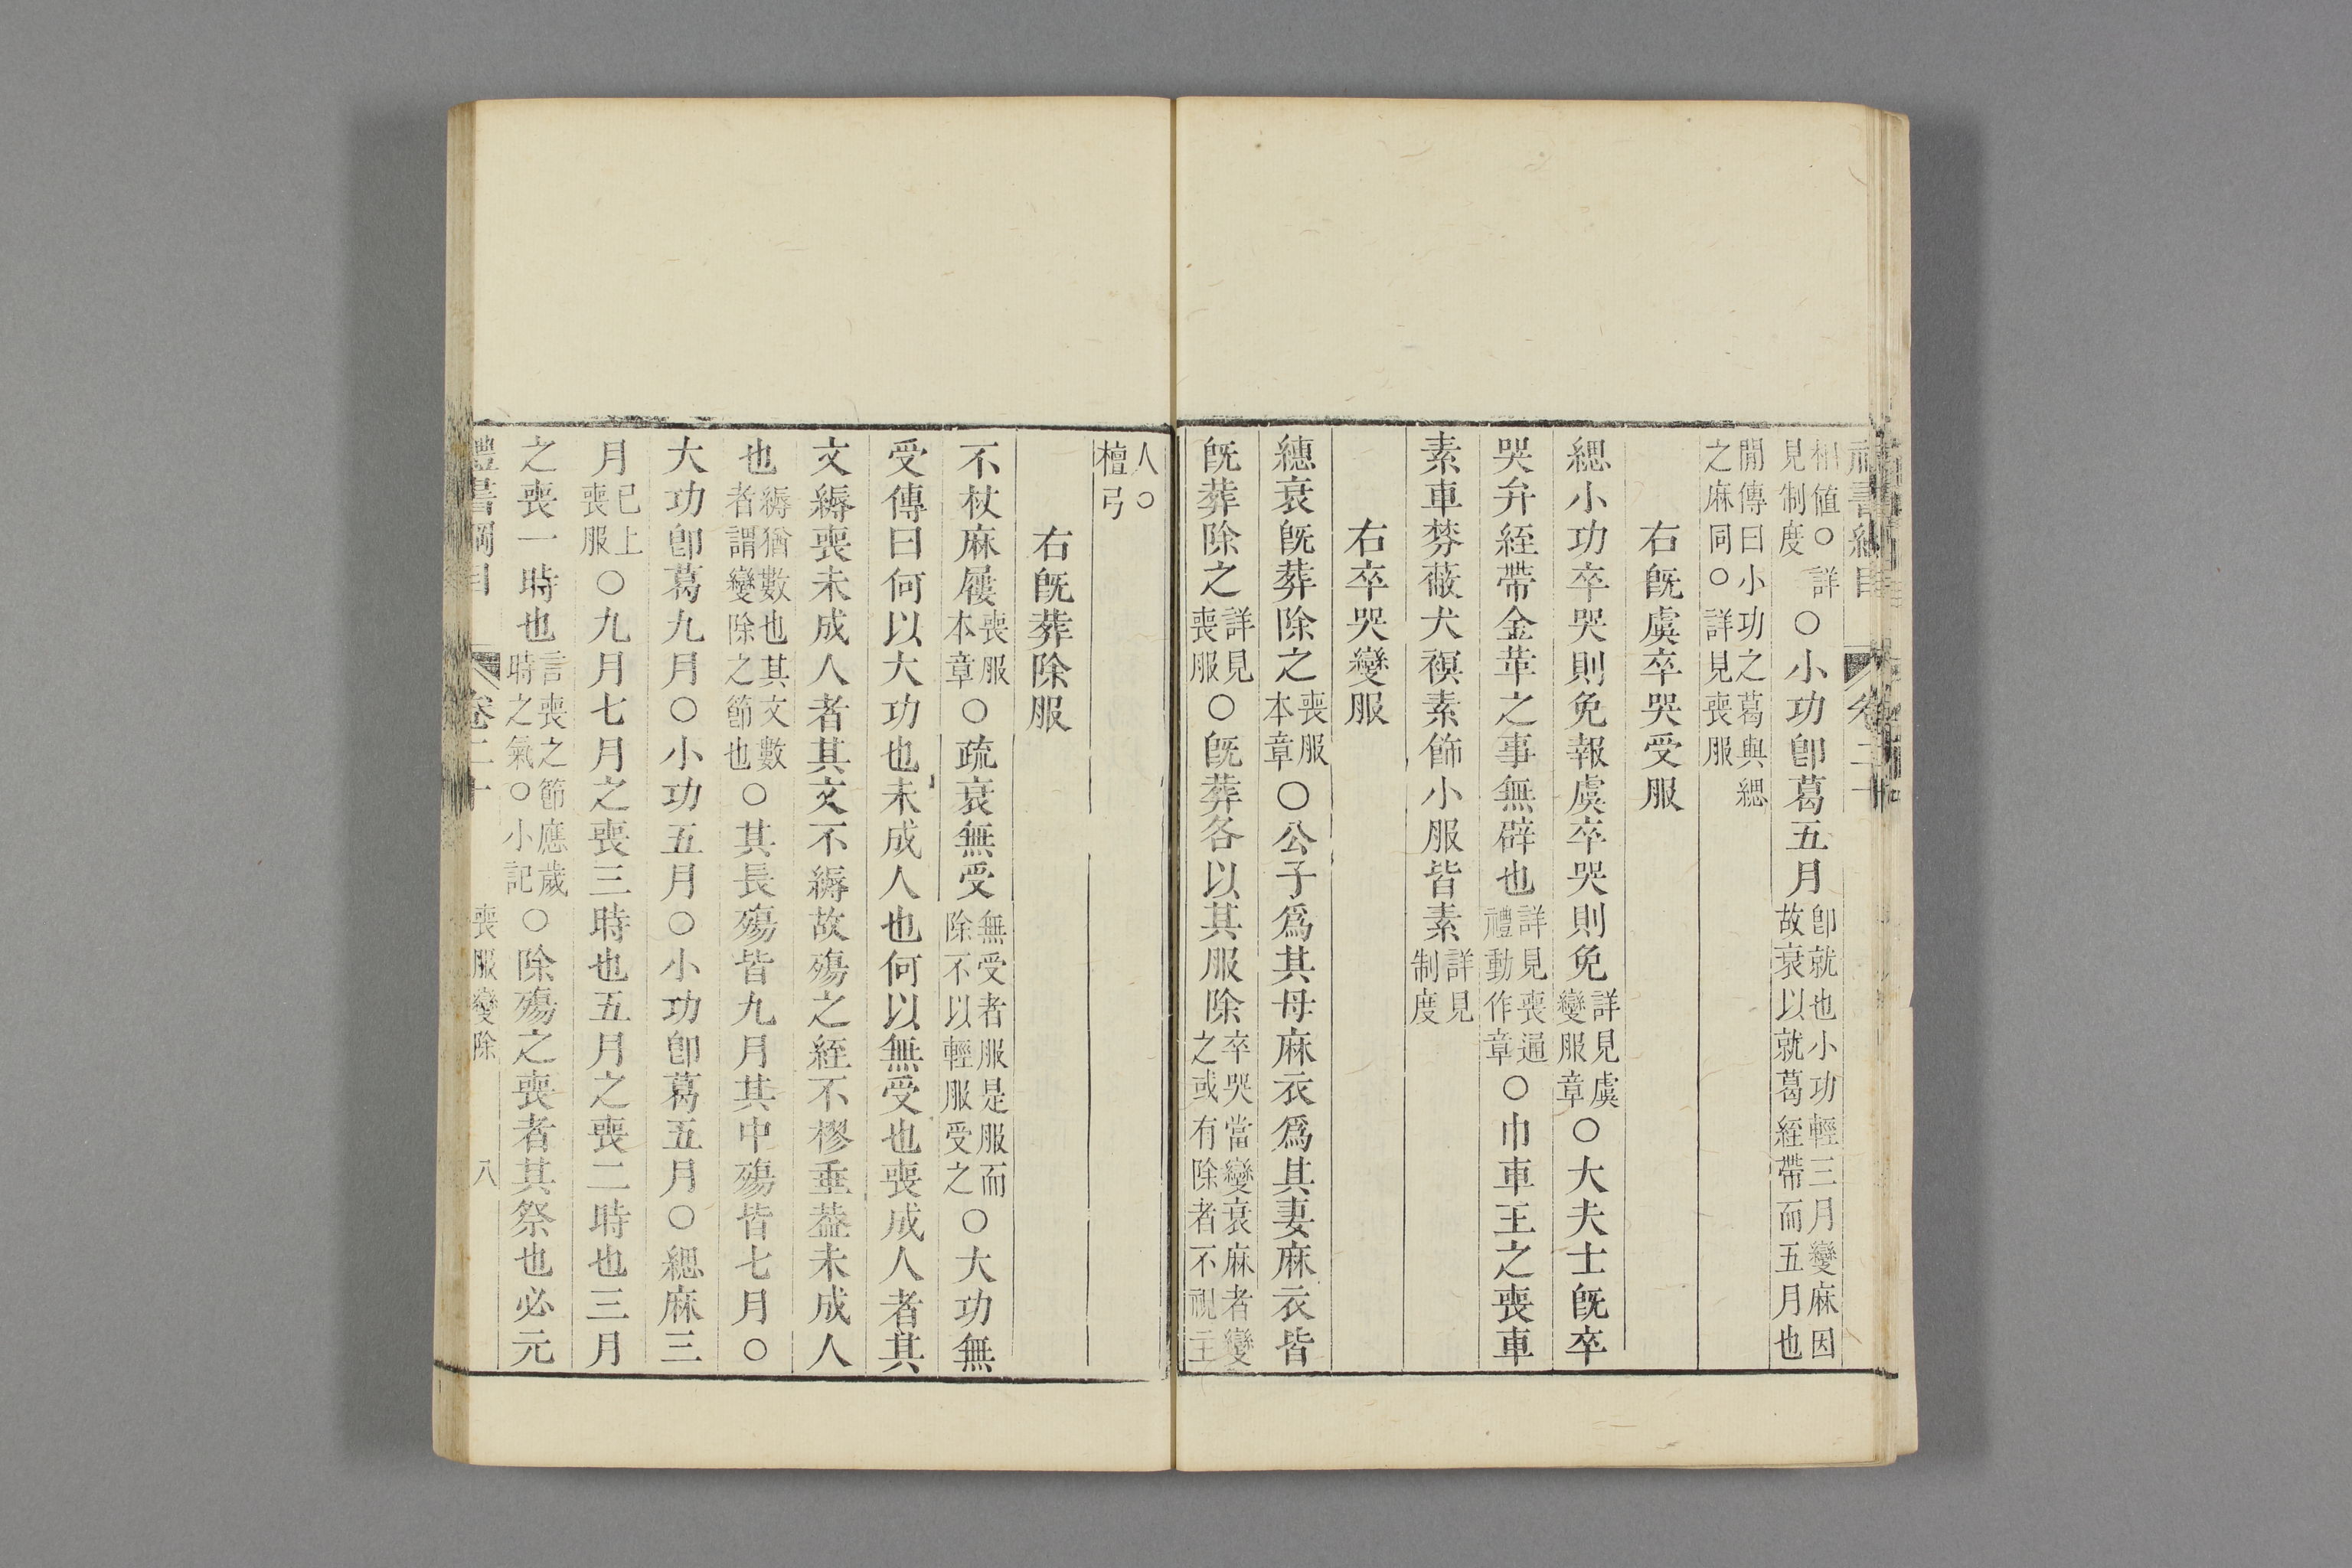 相値○詳見制度○小功卽葛五月卽就也小功輕三月變麻因故衰以就葛絰帶而五月也
閒傳曰小功之葛與緦之麻同○詳見喪服
右旣虞卒哭受服
緦小功卒哭則免報虞卒哭則免詳見虞變服章○大夫士旣卒
哭弁絰帶金革之事無辟也詳見喪通禮動作章○巾車王之喪車
素車棼蔽犬𧜀素飾小服皆素詳見制度
右卒哭變服
繐衰旣葬除之喪服本章○公子爲其母麻衣爲其妻麻衣皆
旣葬除之詳見喪服○旣葬各以其服除卒哭當變衰麻者變之或有除者不視主
人○檀弓
右旣葬除服
不杖麻屨喪服本章○疏衰無受無受者服是服而除不以輕服受之○大功無
受傳曰何以大功也未成人也何以無受也喪成人者其
文縟喪未成人者其文不縟故殤之絰不樛垂葢未成人
也縟猶數也其文數者謂變除之節也○其長殤皆九月其中殤皆七月○
大功卽葛九月○小功五月○小功卽葛五月○緦麻三
月已上喪服○九月七月之喪三時也五月之喪二時也三月
之喪一時也言喪之節應歲時之氣○小記○除殤之喪者其祭也必元
禮書綱目 卷二十 喪服變除 八